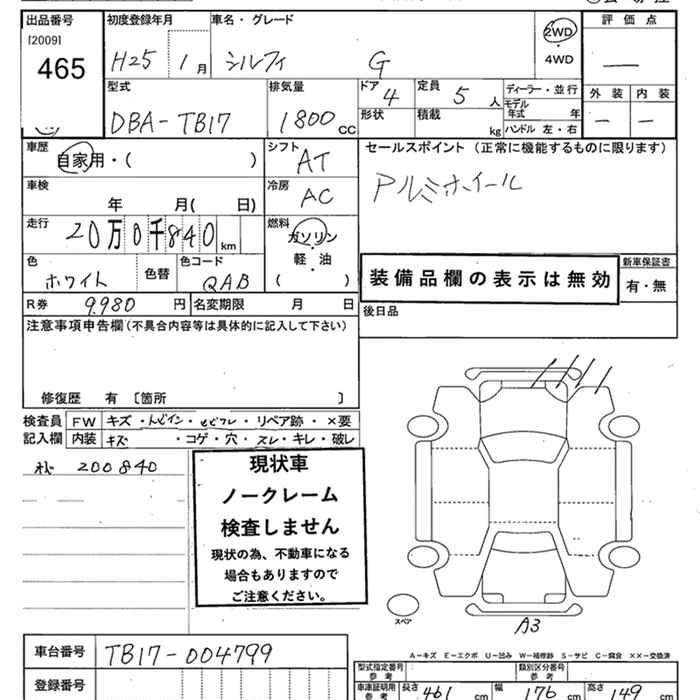 出品番号 初度登録年月 車名・グレード 評価点
[2009]
465
H25 1月 シルフィ G 2WD
・
4WD
外装 内装
型式 排気量 ドア 4 定員 5人 ディーラー・並行
DBA-TB17 1800CC 形状 積載 kg モデル年式 年
ハンドル 左・右
車歴 シフト セールスポイント (正常に機能するものに限ります)
自家用・( ) AT アルミホイール
車検 冷房
年 月( 日) AC
走行 燃料
20万0千840km ガソリン
・
軽・油
( )
色 色替 色コード
ホワイト QAB
装備品欄の表示は無効
新車保証書
有・無
R券 9.980円 名変期限 月 日 後日品
注意事項申告欄(不具合内容等は具体的に記入して下さい)
修復歴 有 [箇所 ]
検査員 FW キズ・ リペア跡・×要
記入欄 内装 キズ ・コゲ・穴・スレ・キレ・破レ
200840
現状車
ノークレーム
検査しません
現状の為、不動車になる
場合もありますので
ご注意ください。
スペア
A3
車台番号 TB17-004799
登録番号
A-キズ E-エクボ U-凹み W-補修跡 S-サビ C-腐食 ××-交換済
型式指定番号 参考 類別区分番号 参考
車庫証明用 参考 長さ 461cm 幅 176cm 高さ 149cm